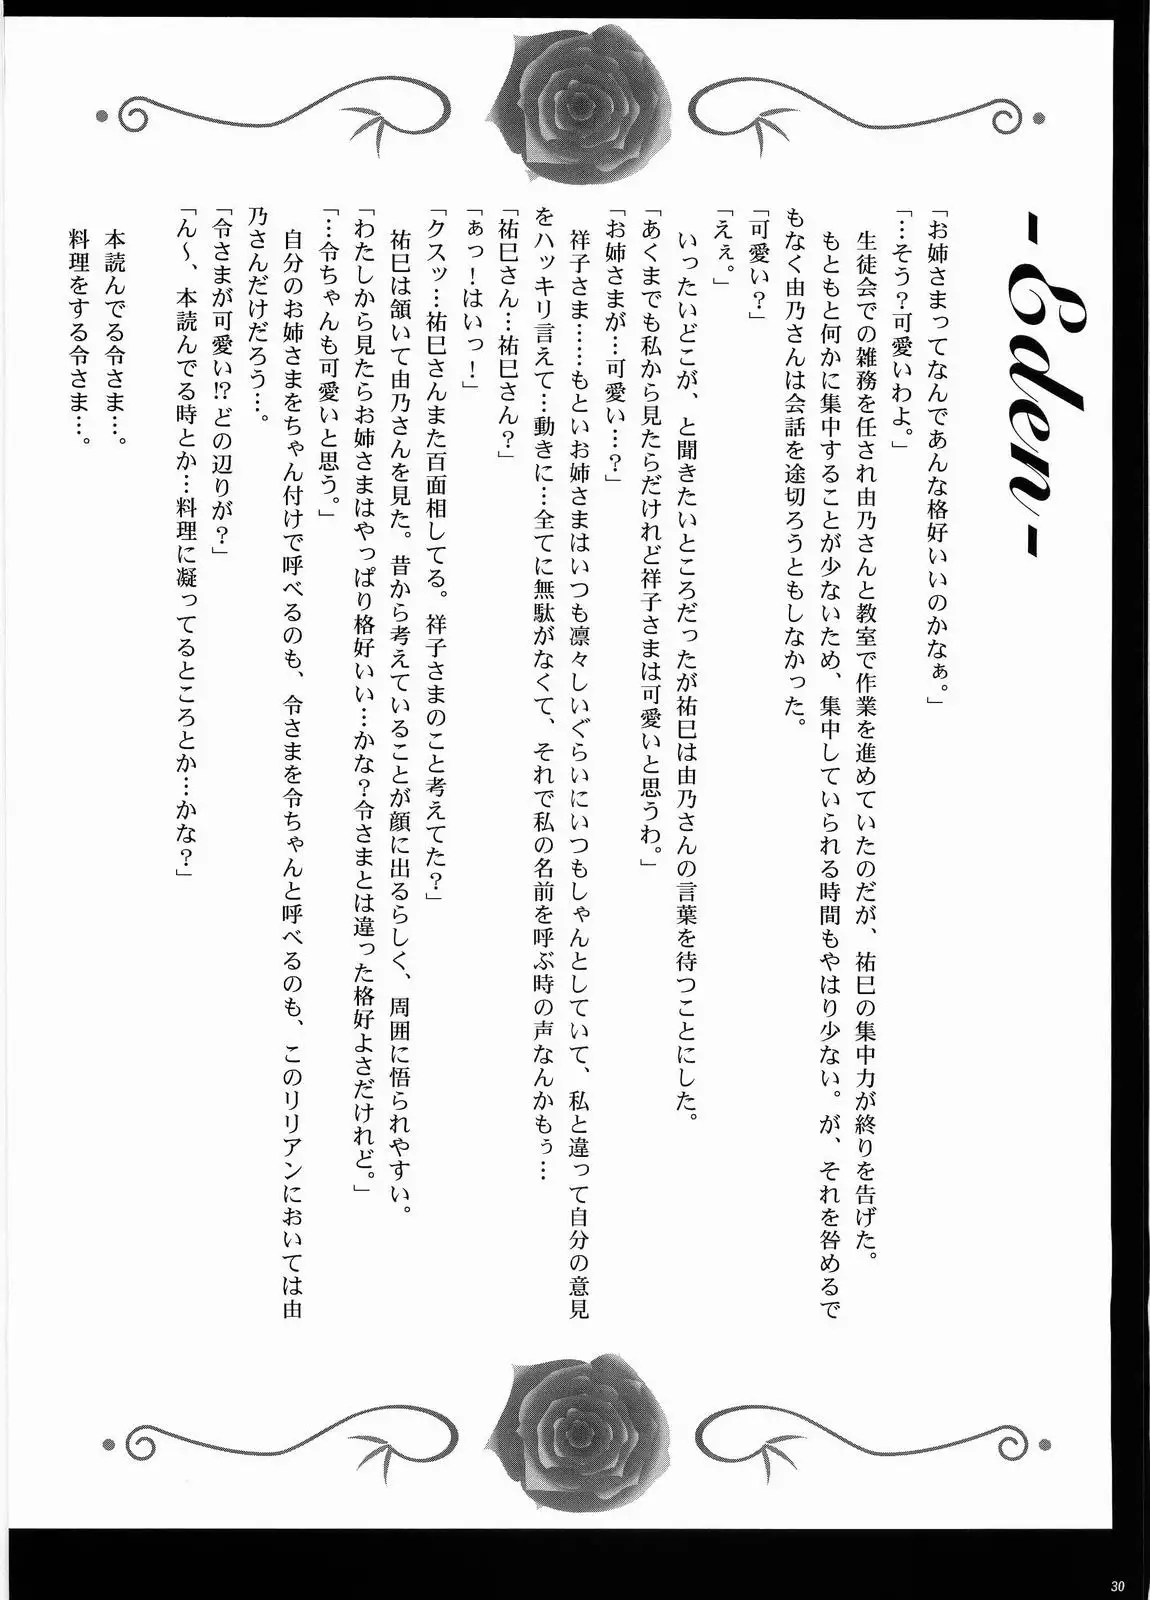 -Eden-
「お姉さまってなんであんな格好いいのかなぁ。」
「…そう？可愛いわよ。」
　生徒会での雑務を任され由乃さんと教室で作業を進めていたのだが、祐巳の集中力が終りを告げた。
　もともと何かに集中することが少ないため、集中していられる時間もやはり少ない。が、それを咎めるで
もなく由乃さんは会話を途切ろうともしなかった。
「可愛い？」
「えぇ。」
　いったいどこが、と聞きたいところだったが祐巳は由乃さんの言葉を待つことにした。
「あくまでも私から見たらだけれど祥子さまは可愛いと思うわ。」
「お姉さまが…可愛い…？」
　祥子さま……もといお姉さまはいつも凛々しいぐらいにいつもしゃんとしていて、私と違って自分の意見
をハッキリ言えて…動きに…全てに無駄がなくて、それで私の名前を呼ぶ時の声なんかもぅ…
「祐巳さん…祐巳さん？」
「ぁっ！はいっ！」
「クスッ…祐巳さんまた百面相してる。祥子さまのこと考えてた？」
　祐巳は頷いて由乃さんを見た。昔から考えていることが顔に出るらしく、周囲に悟られやすい。
「わたしから見たらお姉さまはやっぱり格好いい…かな？令さまとは違った格好よさだけれど。」
「…令ちゃんも可愛いと思う。」
　自分のお姉さまをちゃん付けで呼べるのも、令さまを令ちゃんと呼べるのも、このリリアンにおいては由
乃さんだけだろう…。
「令さまが可愛い!?どの辺りが？」
「ん〜、本読んでる時とか…料理に凝ってるところとか…かな？」
　本読んでる令さま…。
　料理をする令さま…。
30